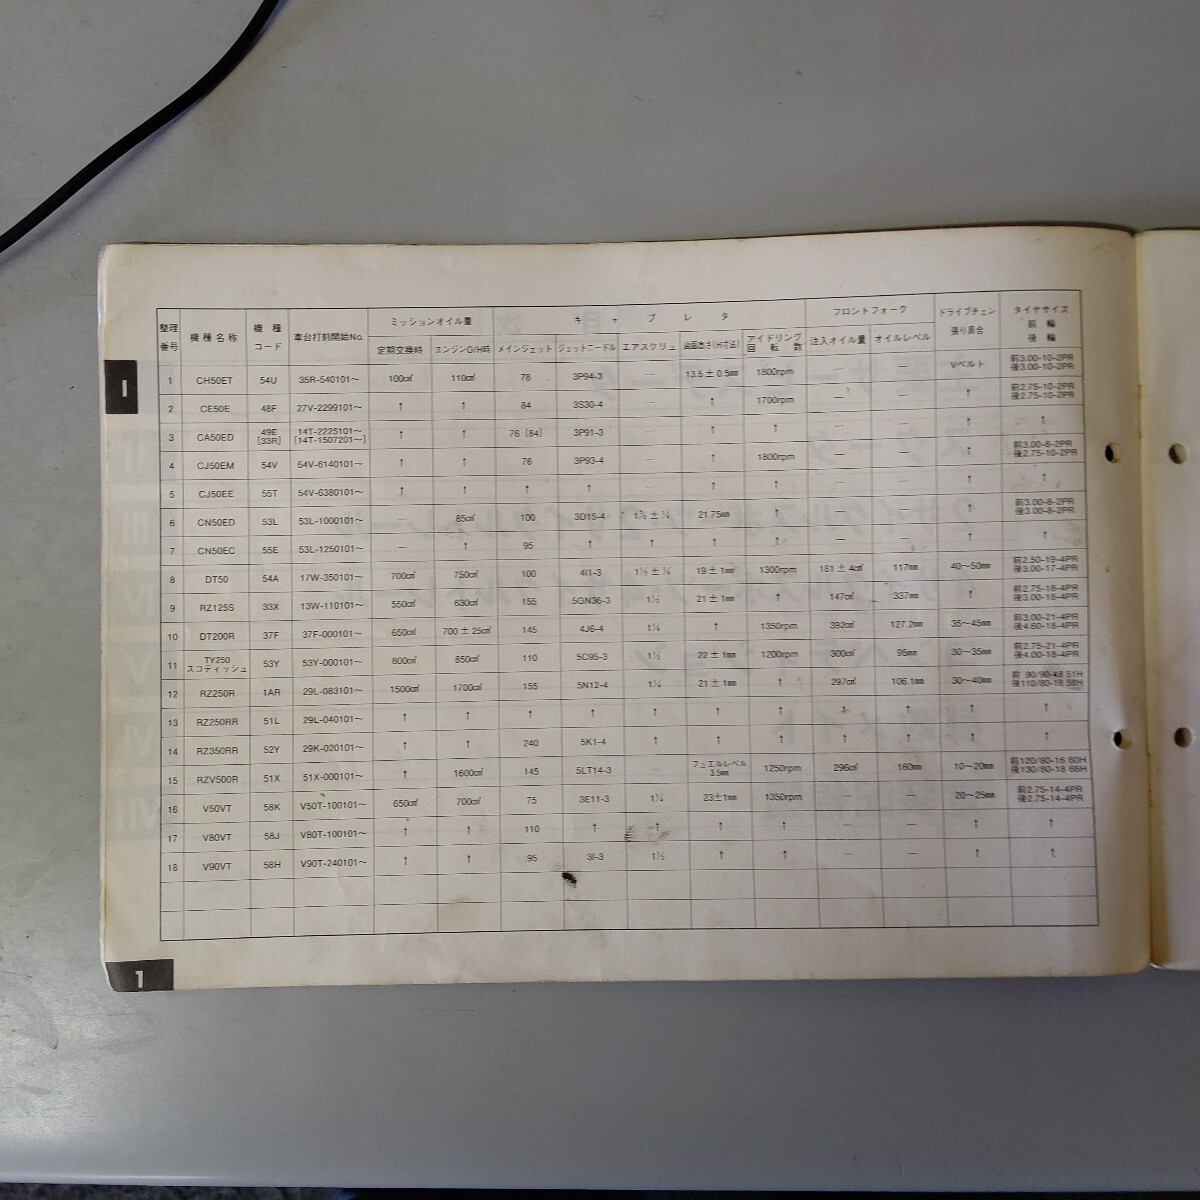 整理番号 機種名称 機種コード 車台打刻開始No. ミッションオイル量 キャブレタ フロントフォーク ドライブチェン張り具合 タイヤサイズ 前輪 後輪
定期交換時 エンジンO/H時 メインジェット ジェットニードル エアスクリュ 油面高さ(H寸法) アイドリング回転数 注入オイル量 オイルレベル
I
1 CH50ET 54U 35R-540101〜 100㎤ 110㎤ 78 3P94-3 — 13.5±0.5㎜ 1800rpm — — Vベルト 前3.00-10-2PR 後3.00-10-2PR
2 CE50E 48F 27V-2299101〜 ↑ ↑ 84 3S30-4 — ↑ 1700rpm — — ↑ 前2.75-10-2PR 後2.75-10-2PR
3 CA50ED 49E [33R] 14T-2225101〜 [14T-1507201〜] ↑ ↑ 76 [84] 3P91-3 — ↑ ↑ — — ↑ ↑
4 CJ50EM 54V 54V-6140101〜 ↑ ↑ 76 3P93-4 — ↑ 1800rpm — — ↑ 前3.00-8-2PR 後2.75-10-2PR
5 CJ50EE 55T 54V-6380101〜 ↑ ↑ ↑ ↑ — ↑ ↑ — — ↑ ↑
6 CN50ED 53L 53L-1000101〜 — 85㎤ 100 3D15-4 21.75㎜ ↑ — — ↑ 前3.00-8-2PR 後3.00-8-2PR
7 CN50EC 55E 53L-1250101〜 — ↑ 95 ↑ ↑ ↑ ↑ — — ↑ ↑
8 DT50 54A 17W-350101〜 700㎤ 750㎤ 100 4I1-3 19±1㎜ 1300rpm 181±4㎤ 117㎜ 40〜50㎜ 前2.50-19-4PR 後3.00-17-4PR
9 RZ125S 33X 13W-110101〜 550㎤ 630㎤ 155 5GN36-3 1½ 21±1㎜ ↑ 147㎤ 337㎜ ↑ 前2.75-18-4PR 後3.00-18-4PR
10 DT200R 37F 37F-000101〜 650㎤ 700±25㎤ 145 4J6-4 ↑ 1350rpm 392㎤ 127.2㎜ 35〜45㎜ 前3.00-21-4PR 後4.60-18-4PR
11 TY250スコティッシュ 53Y 53Y-000101〜 800㎤ 850㎤ 110 5C95-3 1½ 22±1㎜ 1200rpm 300㎤ 95㎜ 30〜35㎜ 前2.75-21-4PR 後4.00-18-4PR
12 RZ250R 1AR 29L-083101〜 1500㎤ 1700㎤ 155 5N12-4 21±1㎜ ↑ 297㎤ 106.1㎜ 30〜40㎜ 前 90/90-18 51H 後110/80-18 58H
13 RZ250RR 51L 29L-040101〜 ↑ ↑ ↑ ↑ ↑ ↑ ↑ ↑ ↑ ↑ ↑
14 RZ350RR 52Y 29K-020101〜 ↑ ↑ 240 5K1-4 ↑ ↑ ↑ ↑ ↑ ↑ ↑
15 RZV500R 51X 51X-000101〜 ↑ 1600㎤ 145 5LT14-3 — フュエルレベル 3.5㎜ 1250rpm 296㎤ 160㎜ 10〜20㎜ 前120/80-16 60H 後130/80-18 66H
16 V50VT 58K V50T-100101〜 650㎤ 700㎤ 75 3E11-3 23±1㎜ 1350rpm — — 20〜25㎜ 前2.75-14-4PR 後2.75-14-4PR
17 V80VT 58J V80T-100101〜 ↑ ↑ 110 ↑ ↑ ↑ ↑ — — ↑ ↑
18 V90VT 58H V90T-240101〜 ↑ ↑ 95 3I-3 1½ ↑ ↑ — — ↑ ↑
1